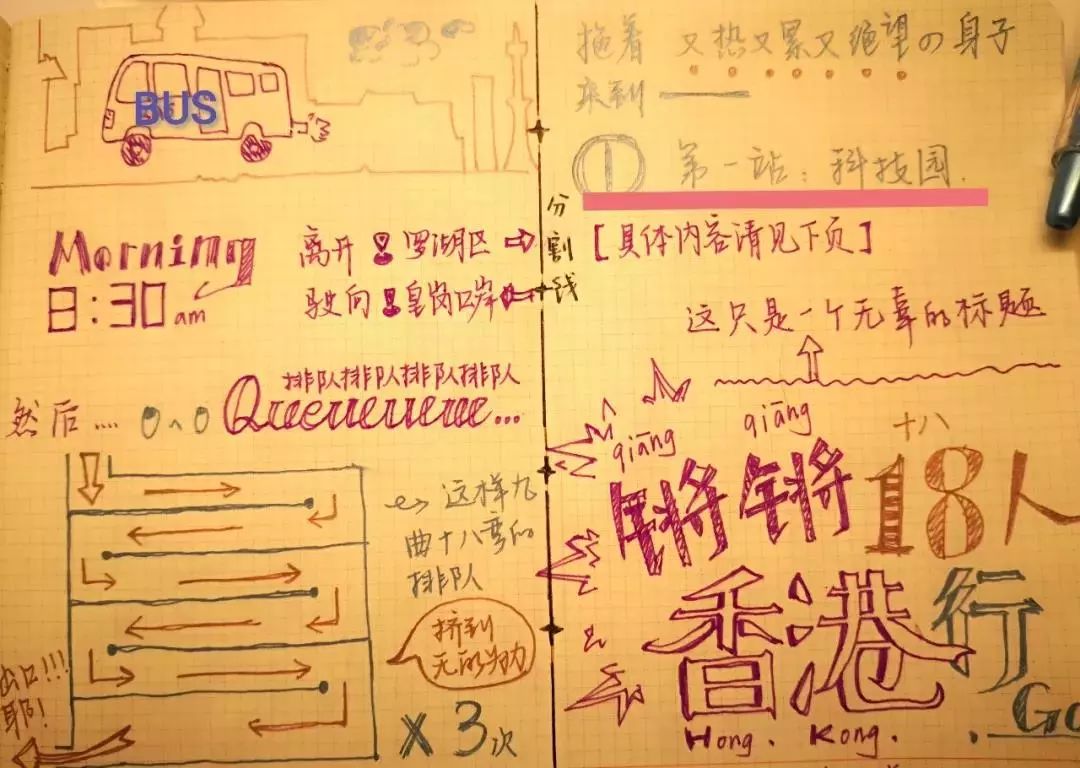 BUS
Morning
8:30 am
离开 罗湖区
驶向 皇岗口岸
排队排队排队排队
然后.... Queueueueue...
→ 这样九
曲十八弯的
排队
挤到
无能为力
× 3次
出口!!!
耶!
分割线
拖着 又热又累又绝望の身子
来到 ——
① 第一站：科技园.
[具体内容请见下页]
这只是一个无辜的标题
qiāng qiāng 十八
锵锵18人
香港行
Hong. Kong. . Go